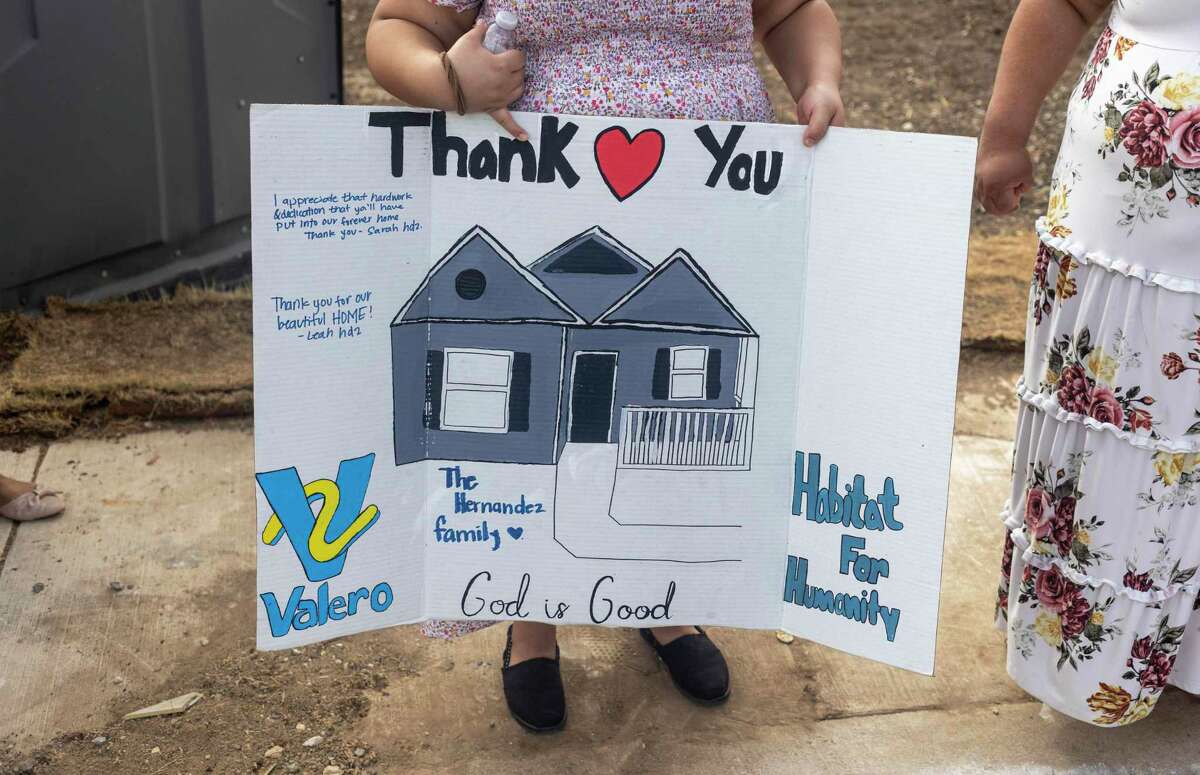 Thank You
I appreciate that hardwork
& dedication that ya'll have
put into our forever home
Thank you - Sarah hdz.
Thank you for our
beautiful HOME!
- Leah hdz
The
Hernandez
family
Valero
God is Good
Habitat
For
Humanity